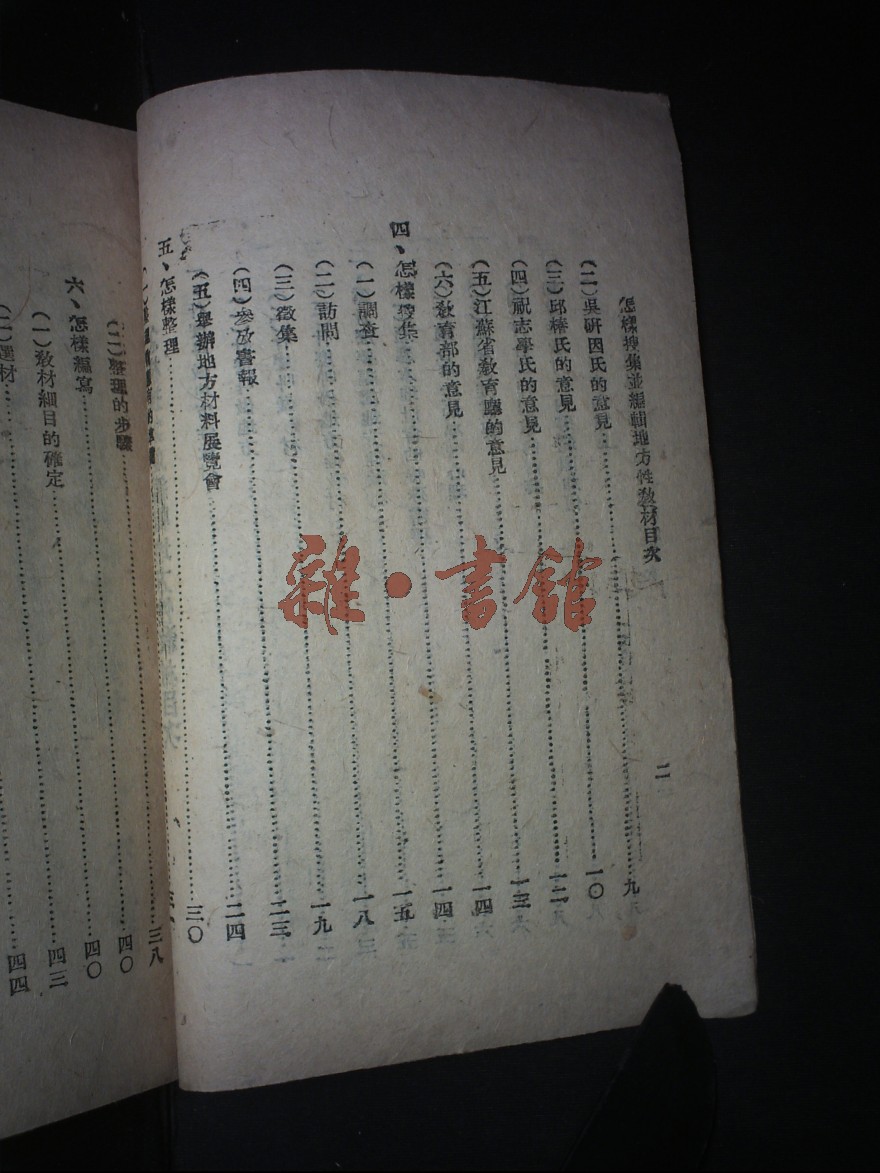 怎樣搜集並編輯地方性教材目次
二
(二)吳研因氏的意見……九
(三)邱椿氏的意見……一〇
(四)祝志學氏的意見……一二
(五)江蘇省教育廳的意見……一三
(六)教育部的意見……一四
四、怎樣搜集……一四
(一)調查……一五
(二)訪問……一八
(三)徵集……一九
(四)參攷書報……二三
(五)舉辦地方材料展覽會……二四
五、怎樣整理……三〇
(二)整理的步驟……三八
六、怎樣編寫……四〇
(一)教材細目的確定……四〇
(二)選材……四三
四四
雜·書館